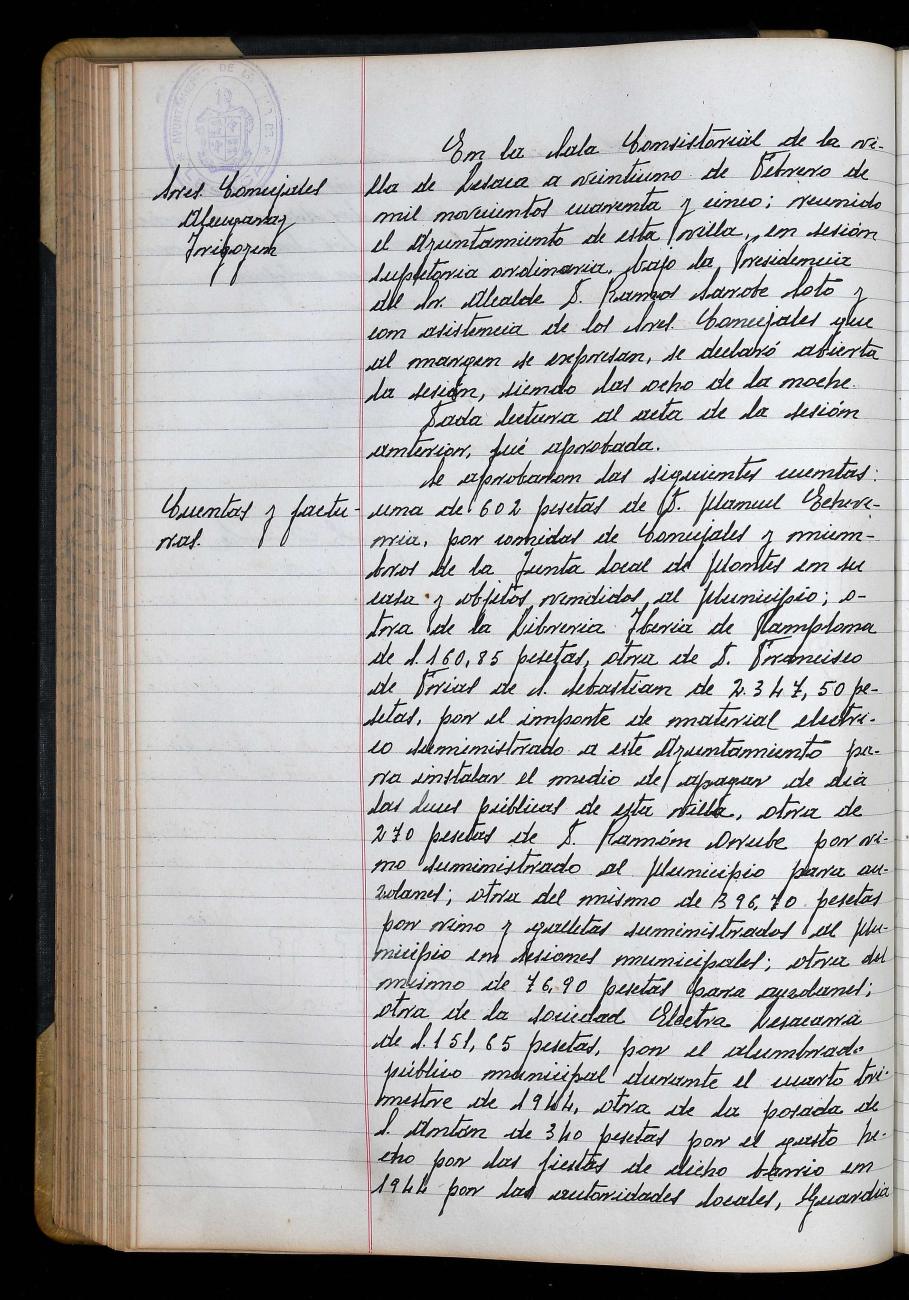 AYUNTAMIENTO DE LESACA
Sres. Concejales
Irigoyen
En la Sala Consistorial de la vi-
lla de Lesaca a veintiuno de Febrero de
mil novecientos cuarenta y cinco; reunido
el Ayuntamiento de esta villa, en sesión
supletoria ordinaria, bajo la Presidencia
del Sr. Alcalde D. Ramos Sarobe Soto y
con asistencia de los Sres. Concejales que
al margen se expresan, se declaró abierta
la sesión, siendo las ocho de la noche.
Dada lectura al acta de la sesión
anterior, fué aprobada.
Cuentas y factu-
ras.
Se aprobaron las siguientes cuentas:
una de 602 pesetas de D. Manuel Echeve-
rria, por comidas de Concejales y miem-
bros de la Junta local de Montes en su
casa y objetos vendidos al Municipio; o-
tra de la Libreria Iberia de Pamplona
de 1.160,85 pesetas, otra de D. Francisco
de Frias de S. Sebastian de 2.347,50 pe-
setas, por el importe de material electri-
co suministrado a este Ayuntamiento pa-
ra instalar el medio de apagar de dia
las luces públicas de esta villa, otra de
270 pesetas de D. Ramón Orube por vi-
no suministrado al Municipio para au-
zolanes; otra del mismo de 396,70 pesetas
por vino y galletas suministrados al Mu-
nicipio en sesiones municipales; otra del
mismo de 76,90 pesetas para auzolanes;
otra de la sociedad Electra Lesacarra
de 1.151,65 pesetas, por el alumbrado
público municipal durante el cuarto tri-
mestre de 1944, otra de la posada de
S. Antón de 340 pesetas por el gasto he-
cho por las fiestas de dicho barrio en
1944 por las autoridades locales, Guardia